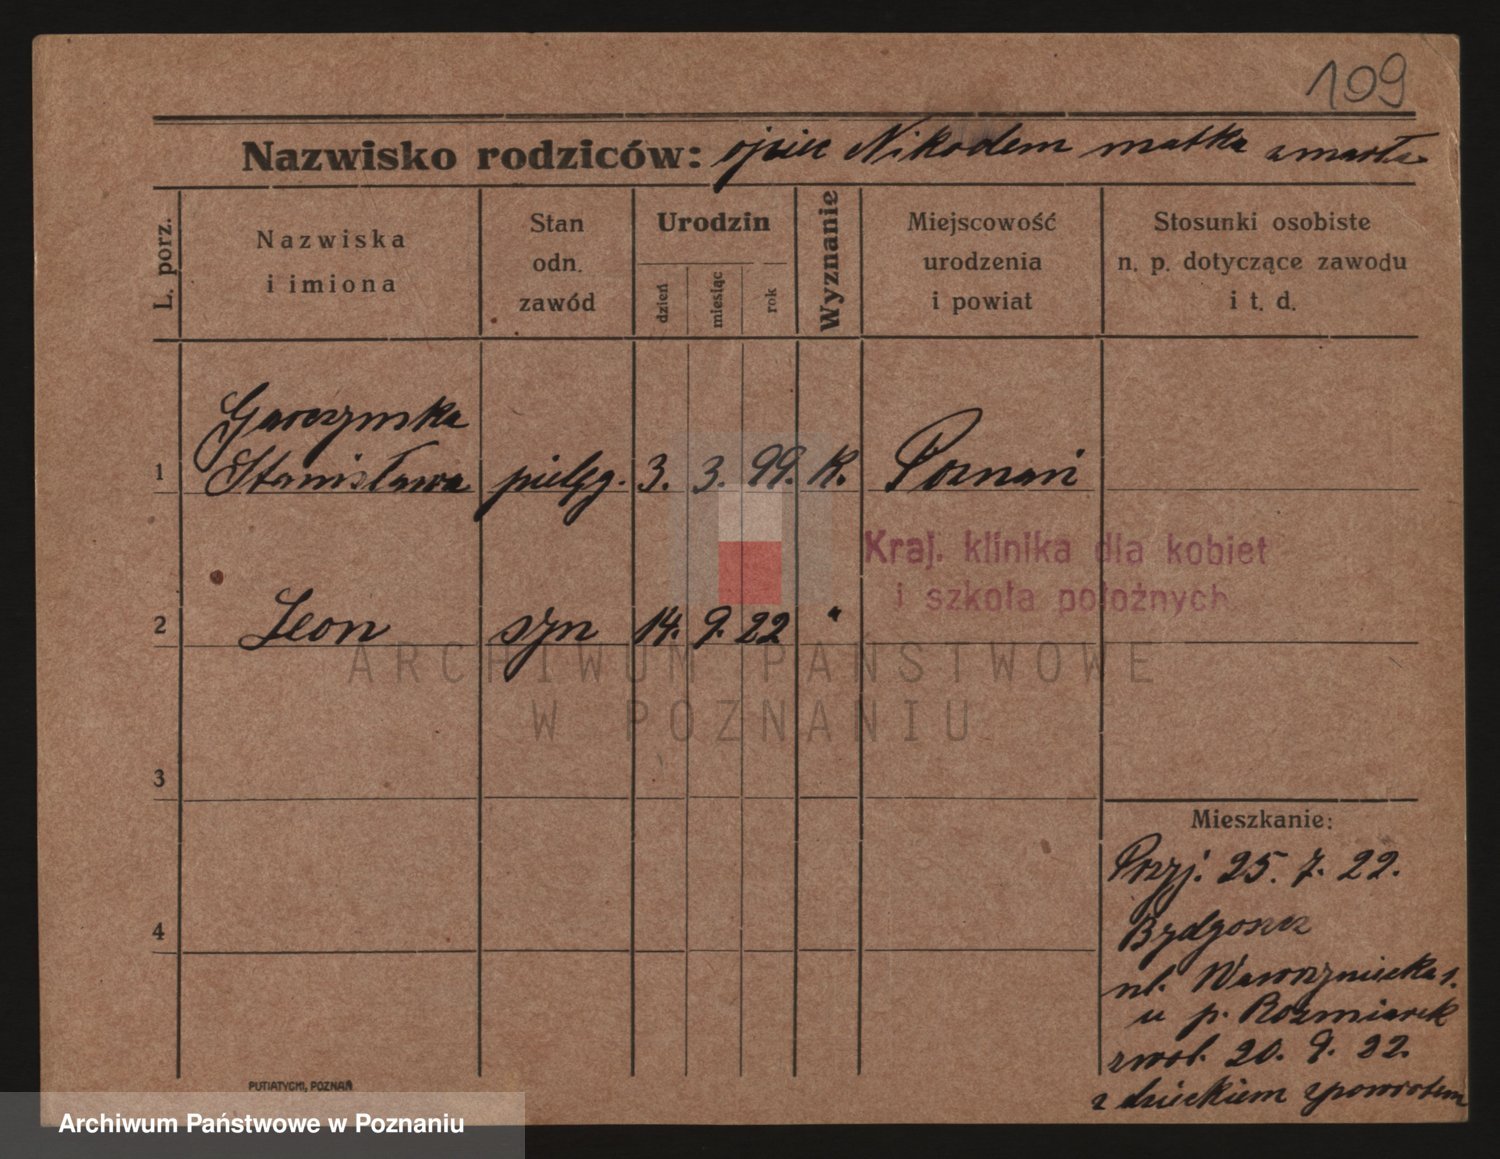 109
Nazwisko rodziców: ojciec Nikodem matka zmarła
L. porz.
Nazwiska
i imiona
Stan
odn.
zawód
Urodzin
dzień
miesiąc
rok
Wyznanie
Miejscowość
urodzenia
i powiat
Stosunki osobiste
n. p. dotyczące zawodu
i t. d.
Garczynska
1 Stanisława pielęg. 3. 3. 99. K. Poznań
Kraj. klinika dla kobiet
i szkoła położnych
2 Leon syn 14. 9. 22 "
ARCHIWUM PAŃSTWOWE
W POZNANIU
3
Mieszkanie:
Przyj. 25. 7. 22.
4
Bydgoszcz
ul. Wawrzyniecka 1.
u p. Rozmiarek
zwol. 20. 9. 22.
z dzieckiem zpowrotem
PUTIATYCKI, POZNAŃ
Archiwum Państwowe w Poznaniu